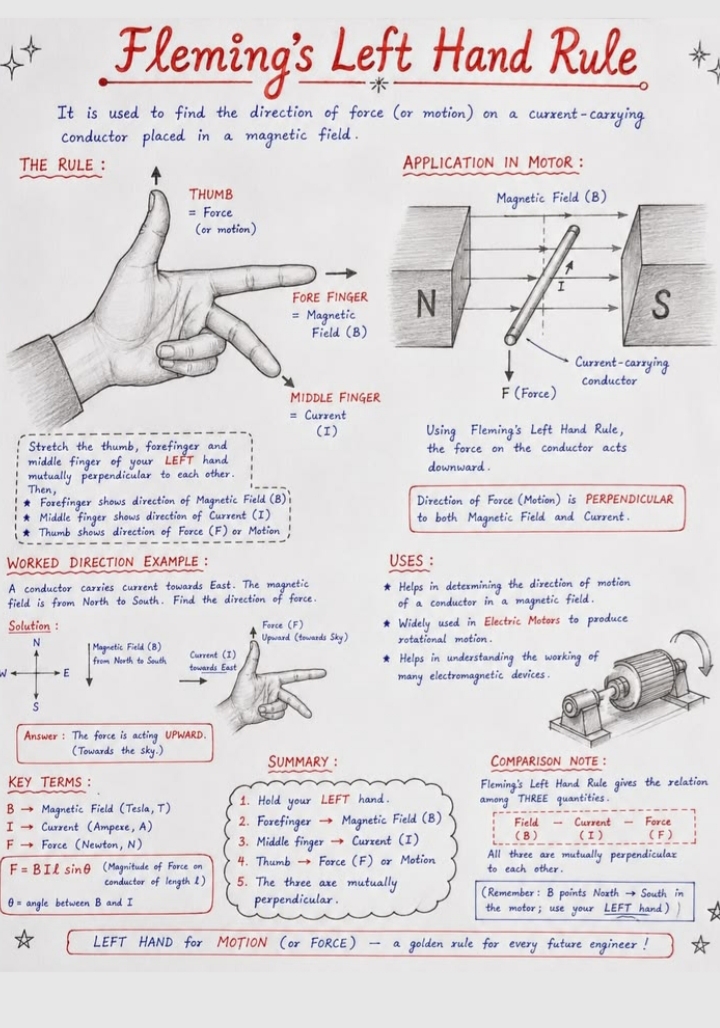 Fleming's Left Hand Rule
It is used to find the direction of force (or motion) on a current-carrying
conductor placed in a magnetic field.
THE RULE :
THUMB
= Force
(or motion)
FORE FINGER
= Magnetic
Field (B)
MIDDLE FINGER
= Current
(I)
Stretch the thumb, forefinger and
middle finger of your LEFT hand
mutually perpendicular to each other.
Then,
★ Forefinger shows direction of Magnetic Field (B)
★ Middle finger shows direction of Current (I)
★ Thumb shows direction of Force (F) or Motion
APPLICATION IN MOTOR :
Magnetic Field (B)
N
I
S
F (Force)
Current-carrying
conductor
Using Fleming's Left Hand Rule,
the force on the conductor acts
downward.
Direction of Force (Motion) is PERPENDICULAR
to both Magnetic Field and Current.
WORKED DIRECTION EXAMPLE :
A conductor carries current towards East. The magnetic
field is from North to South. Find the direction of force.
Solution :
N
W E
S
Magnetic Field (B)
from North to South
Current (I)
towards East
Force (F)
Upward (towards Sky)
Answer : The force is acting UPWARD.
(Towards the sky.)
USES :
★ Helps in determining the direction of motion
of a conductor in a magnetic field.
★ Widely used in Electric Motors to produce
rotational motion.
★ Helps in understanding the working of
many electromagnetic devices.
KEY TERMS :
B → Magnetic Field (Tesla, T)
I → Current (Ampere, A)
F → Force (Newton, N)
F = B I l sinθ (Magnitude of Force on
conductor of length l)
θ = angle between B and I
SUMMARY :
1. Hold your LEFT hand.
2. Forefinger → Magnetic Field (B)
3. Middle finger → Current (I)
4. Thumb → Force (F) or Motion
5. The three are mutually
perpendicular.
COMPARISON NOTE :
Fleming's Left Hand Rule gives the relation
among THREE quantities.
Field – Current – Force
(B) (I) (F)
All three are mutually perpendicular
to each other.
(Remember : B points North → South in
the motor ; use your LEFT hand)
LEFT HAND for MOTION (or FORCE) – a golden rule for every future engineer !